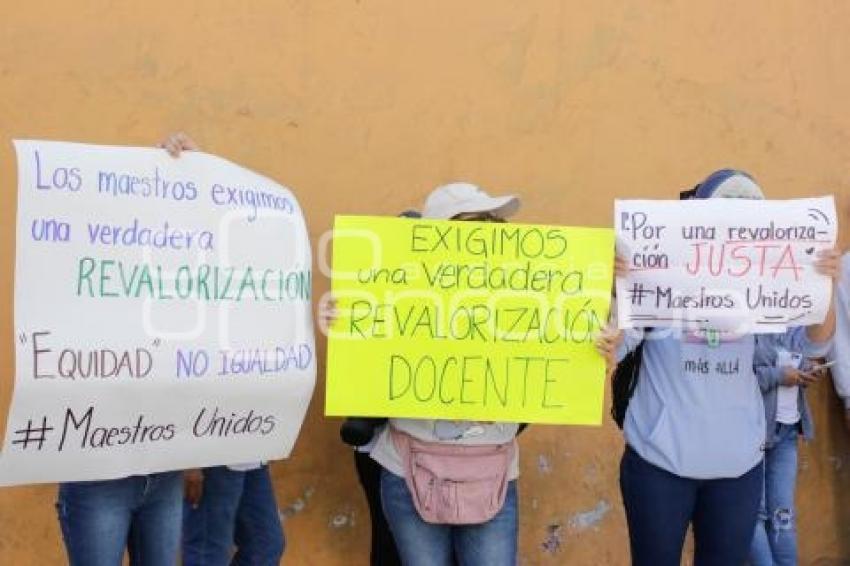 Los maestros exigimos
una verdadera
REVALORIZACIÓN
"EQUIDAD" NO IGUALDAD
#Maestros Unidos
EXIGIMOS
una verdadera
REVALORIZACIÓN
DOCENTE
"Por una revaloriza-
ción JUSTA"
#Maestros Unidos
más allá